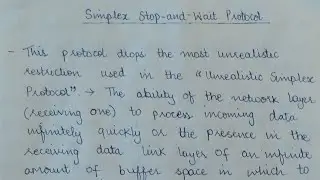 Simplex Stop-and-Wait Protocol
- This protocol drops the most unrealistic
restriction used in the "Unrealistic Simplex
Protocol". → The ability of the network layer
(receiving one) to process incoming data
infinitely quickly or the presence in the
receiving data link layer of an infinite
amount of buffer space in which to